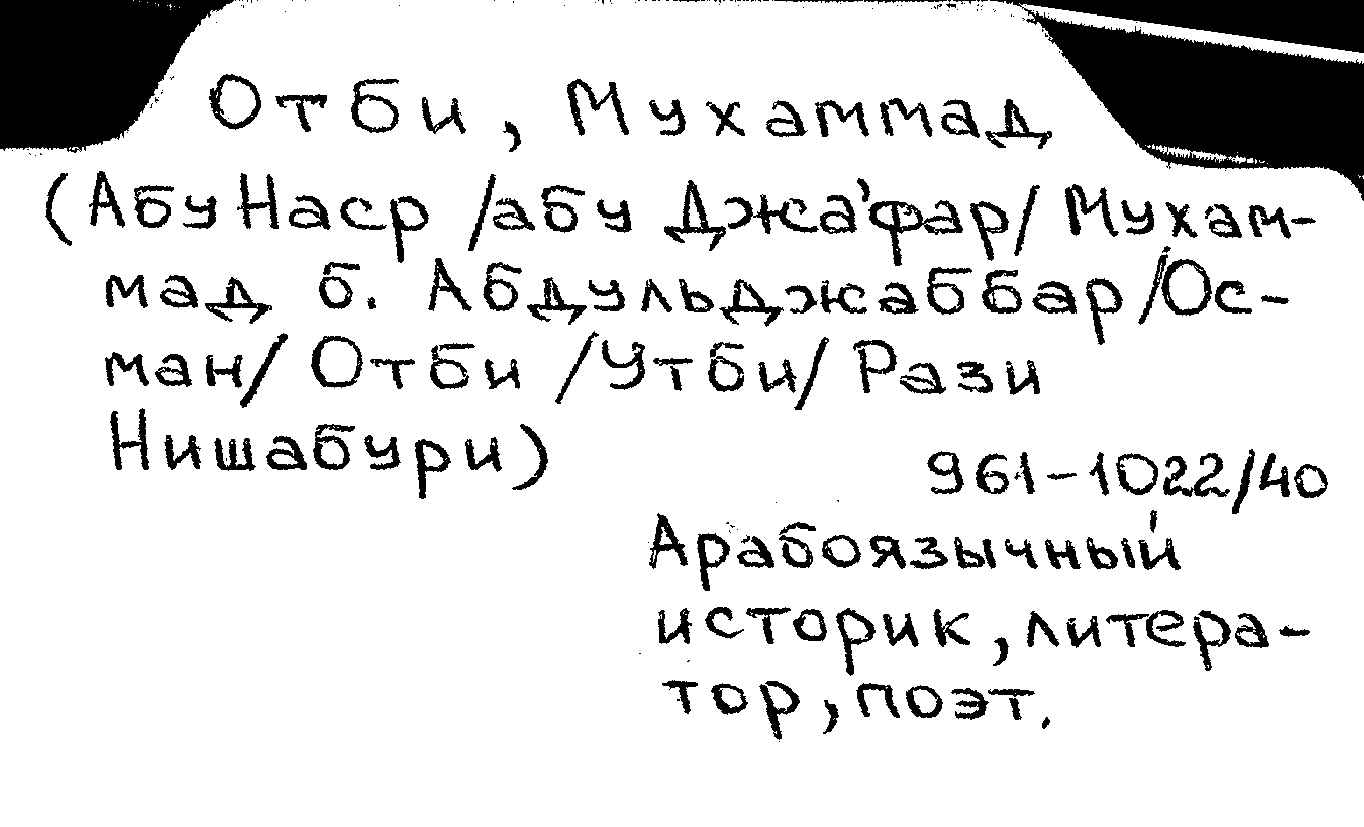 Отби, Мухаммад
(Абу Наср /абу Джа'фар/ Мухам-
мад б. Абдульджаббар /Ос-
ман/ Отби /Утби/ Рази
Нишабури)
961-1022/40
Арабоязычный
историк, литера-
тор, поэт.